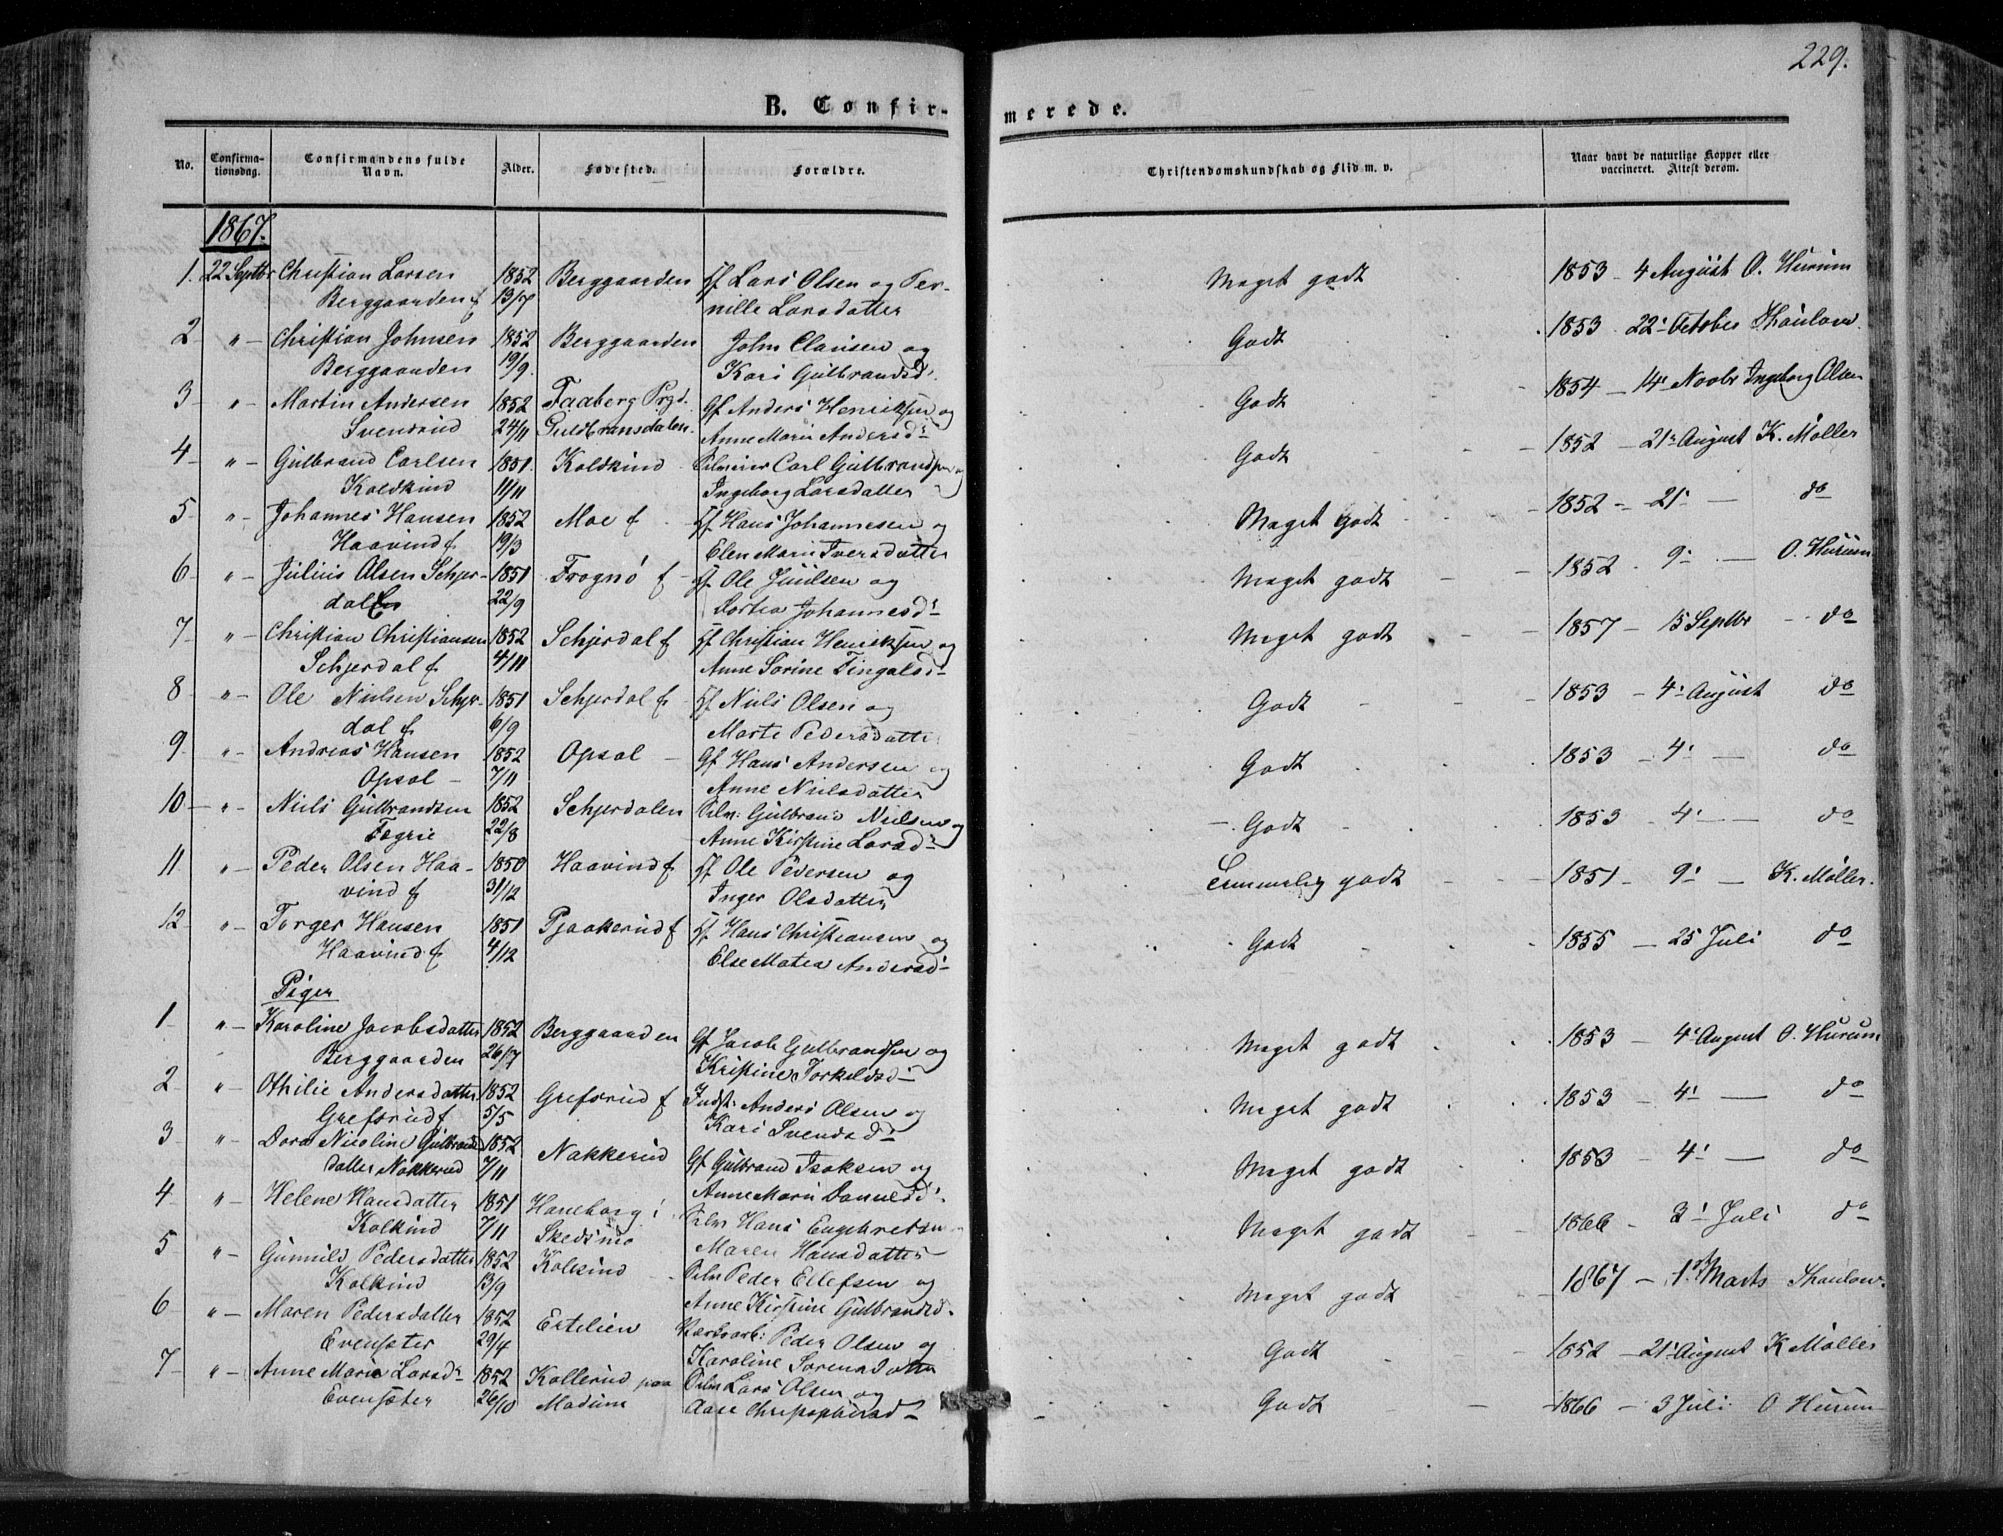 229.
B. Confir-
merede.
No.
Confirma-
tionsdag.
Confirmandens fulde
Navn.
Alder.
Fødested.
Forældre.
Christendomskundskab og Flid m. v.
Naar havt de naturlige Kopper eller
vaccineret. Attest derom.
1867.
1. 22 Septbr Christian Larsen 1852 Berggaarden Hf Lars Olsen og Per- Meget godt 1853 - 4 August O. Hurum
Berggaarden f 13/7 nille Larsdatter
2 " Christian Johnsen 1852 Berggaarden John Clausen og Godt 1853 22' October Thaulow
Berggaarden 19/9. Kari Gulbrandsd.
3 - " - Martin Andersen 1852 Faaberg Prgd. Gf Anders Henriksen og Godt 1854 - 14' Novbr Ingeborg Olsen
Svensrud 24/11 Guldbransdalen Anne Marie Andersd:
4 - " - Gulbrand Carlsen 1851. Koldkind Selveier Carl Gulbrandsen og Godt 1852 - 21' August K. Møller
Koldkind 11/11 Ingeborg Larsdatter
5 " - Johannes Hansen 1852 Moe f Hf Hans Johannesen og Meget godt 1852 - 21' - do
Haavind f 19/3 Elen Marie Iversdatter
6 - " - Julius Olsen Schjer- 1851 Frognø f - Hf Ole Juulsen og Meget godt 1852 9' - O. Hurum
dalen 22/9 Dortea Johannesd:
7 - " - Christian Christiansen 1852 Schjerdal f Hf Christian Henriksen og Meget godt 1857 - 15 Septbr - do
Schjerdal f 4/11 Anne Sorine Fingalsd:
8 " - Ole Nielsen Schjer- 1851 Schjerdal f Hf Niels Olsen og Godt 1853 - 4' August do
dal f 6/9 Marte Pedersdatter
9 " - Andreas Hansen 1852 Opsal - Gf Hans Andersen og Godt 1853 - 4' do
Opsal - 7/11 Anne Nielsdatter
10 - " - Niels Gulbrandsen 1852 Schjerdalen Selv: Gulbrand Nielsen og Godt 1853 - 4' - do
Fagrie 22/8 Anne Kirstine Larsd:
11 " - Peder Olsen Haa- 1850 Haavind f Hf Ole Pedersen og Temmelig godt 1851 - 9' - K. Møller.
vind f 31/12 Inger Olsdatter
12 " - Torger Hansen 1851 Pjaakerud f Hf Hans Christiansen og Godt 1855 - 25 Juli do
Haavind f 4/12 Else Matea Andersd:
Piger
1 " - Karoline Jacobsdatter 1852 Berggaarden Gf Jacob Gulbrandsen og Meget godt 1853 - 4' August O. Hurum
Berggaarden 26/7 Kristine Torkeldsd:
2 " - Othilie Andersdatter 1852 Grefsrud f Indst: Anders Olsen og Meget godt 1853 - 4' - do
Grefsrud f 5/5 Kari Svendsd:
3 " - Dora Nicoline Gulbrands 1852 Nakkerud Gf Gulbrand Isaksen og Meget godt 1853 - 4' - do
datter Nakkerud 7/11 Anne Marie Danielsd:
4 - " - Helene Hansdatter 1851 Haneborg i Selv Hans Engebretsen Meget godt 1866 - 3' Juli do
Kolkind 7/11 Skedsmo Maren Hansdatter
5 " - Gunnild Pedersdatter 1852 Kolkind Selv Peder Ellefsen og Meget godt 1867 - 1' Marts Thaulow.
Kolkind 13/9 Anne Kirstine Gulbrandsd.
6 - " - Maren Pedersdatter 1852 Ertelien Værksarb: Peder Olsen og Godt 1852 - 21' August K Møller
Evensæter 29/4 Karoline Sorensdatter
7 - " - Anne Marie Larsd: 1852 Kollerud paa Selv Lars Olsen og Godt 1866 - 3 Juli O Hurum
Evensæter 26/10 Modum Aase Christophersd: